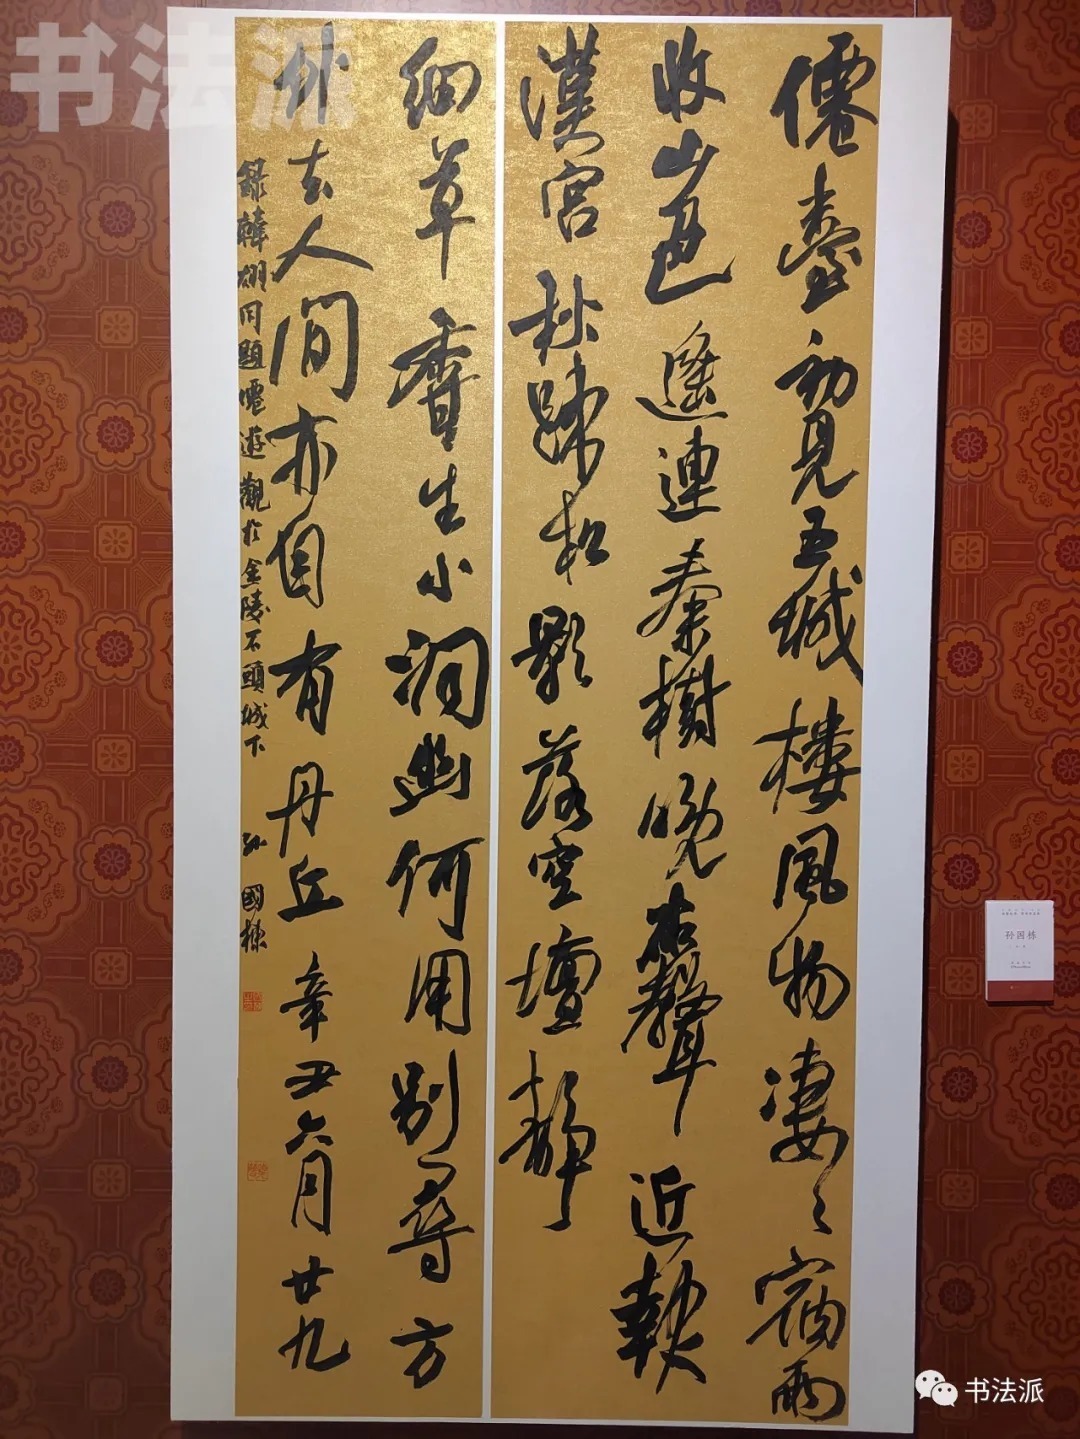 书法派
僊臺初見五城樓風物凄〻宿雨
收山色遥連秦樹晚砧聲近報
漢宫秋疎松影落空壇静
細草香生小洞幽何用别尋方
外去人間亦自有丹丘 辛丑六月廿九
録韓翃同題僊遊觀於金陵石頭城下 孙國棟
孙国栋
书法派